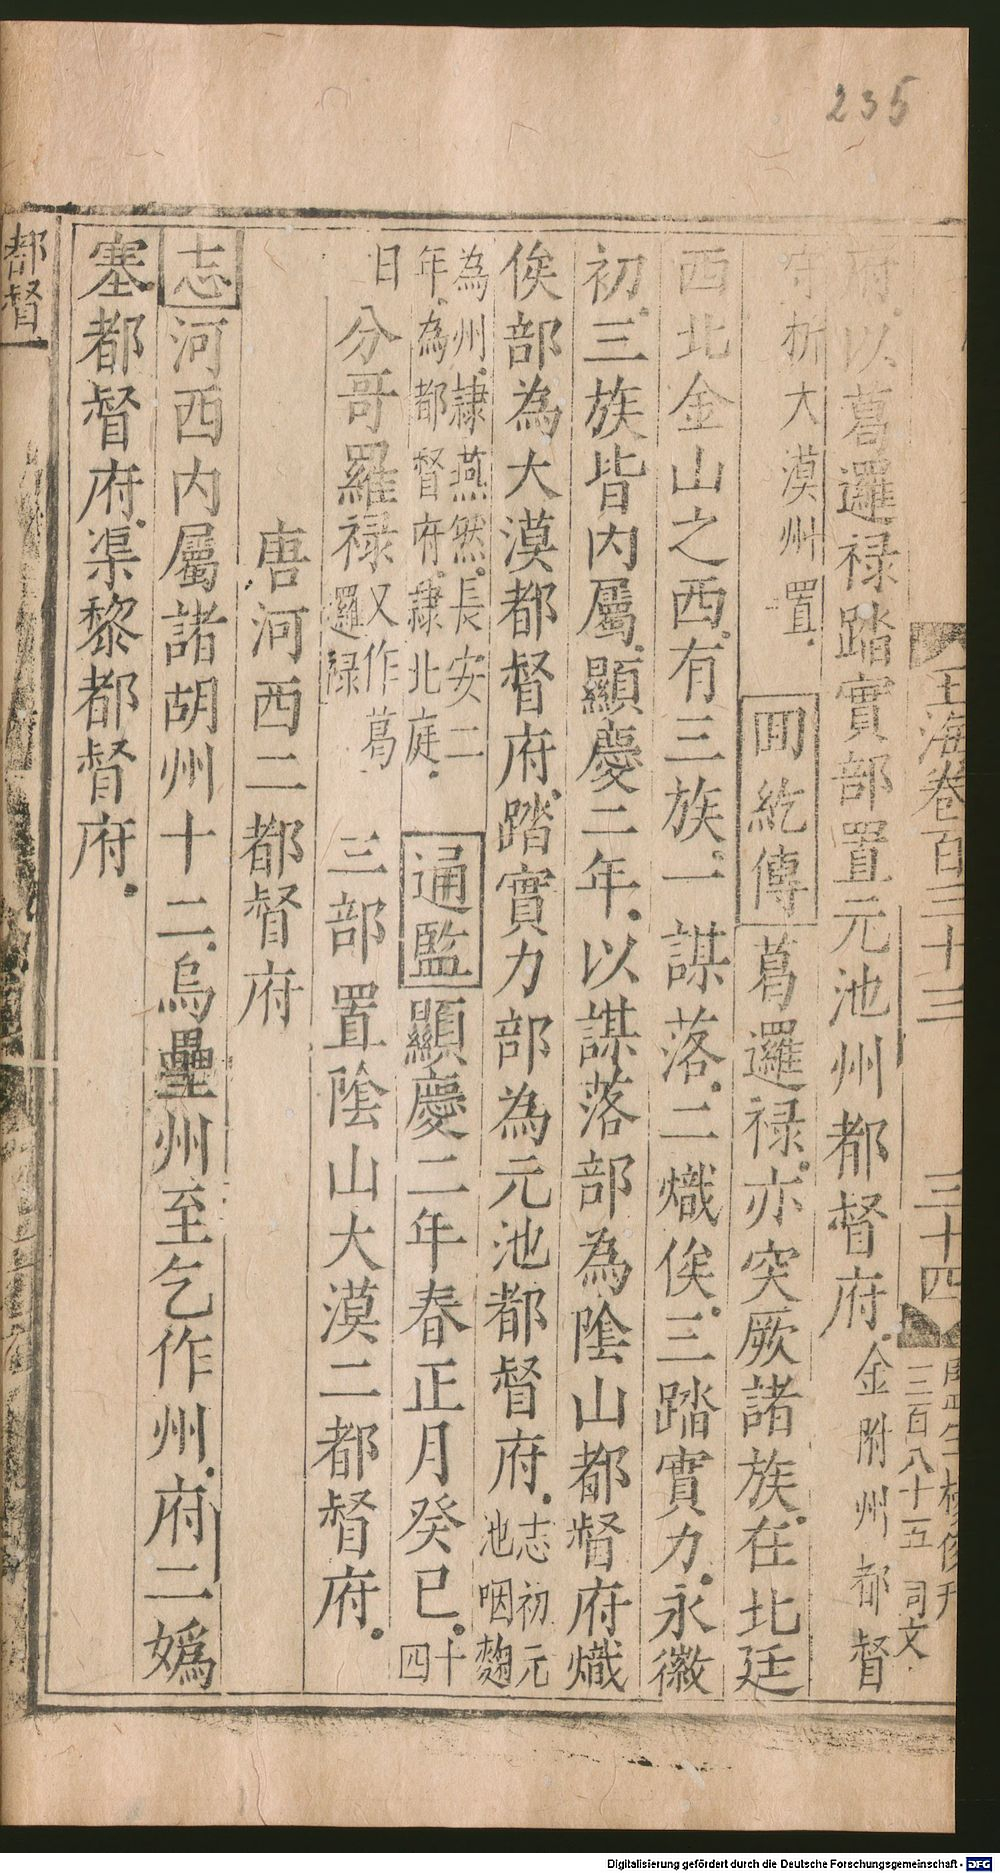 235
玉海卷百三十三 三十四
三百八十五 司文
府以葛邏禄踏實部置元池州都督府金附州都督
守折大漠州置
回紇傳葛邏禄亦突厥諸族在北廷
西北金山之西有三族一謀落二熾俟三踏實力永徽
初三族皆内屬顯慶二年以謀落部為隂山都督府熾
俟部為大漠都督府踏實力部為元池都督府志初元
池咽麪
為州隷燕然長安二
年為都督府隷北庭
通監顯慶二年春正月癸巳十
四
日
分哥羅禄又作葛
邏禄
三部置隂山大漠二都督府
唐河西二都督府
志河西内屬諸胡州十二烏壘州至乞作州府二嬀
塞都督府渠黎都督府
都督
Digitalisierung gefördert durch die Deutsche Forschungsgemeinschaft - DFG